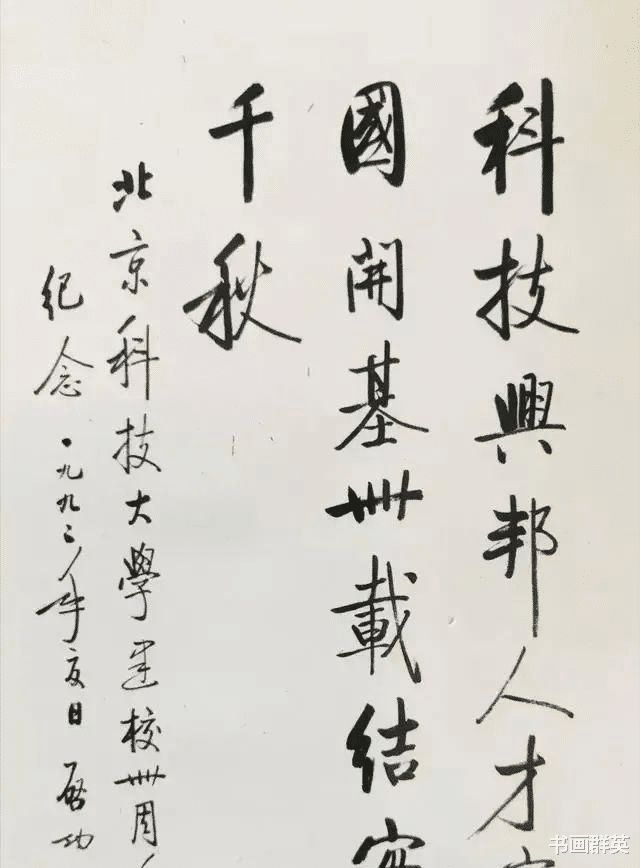 科技興邦人才
國開基卌載結
千秋
北京科技大學建校卌周
紀念一九九二年夏日 啓功
书画群英